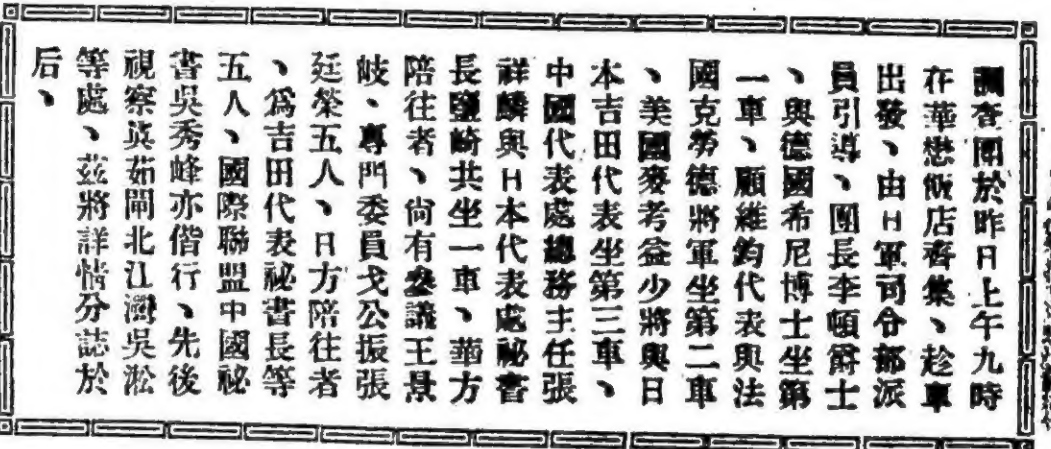 調查團於昨日上午九時
在華懋飯店齊集、趁車
出發、由日軍司令部派
員引導、團長李頓爵士
、與德國希尼博士坐第
一車、顧維鈞代表與法
國克勞德將軍坐第二車
、美國麥考益少將與日
本吉田代表坐第三車、
中國代表處總務主任張
祥麟與日本代表處祕書
長鹽崎共坐一車、華方
陪往者、尙有參議王景
岐、專門委員戈公振張
廷榮五人、日方陪往者
、爲吉田代表祕書長等
五人、國際聯盟中國祕
書吳秀峰亦偕行、先後
視察眞茹閘北江灣吳淞
等處、茲將詳情分誌於
后、